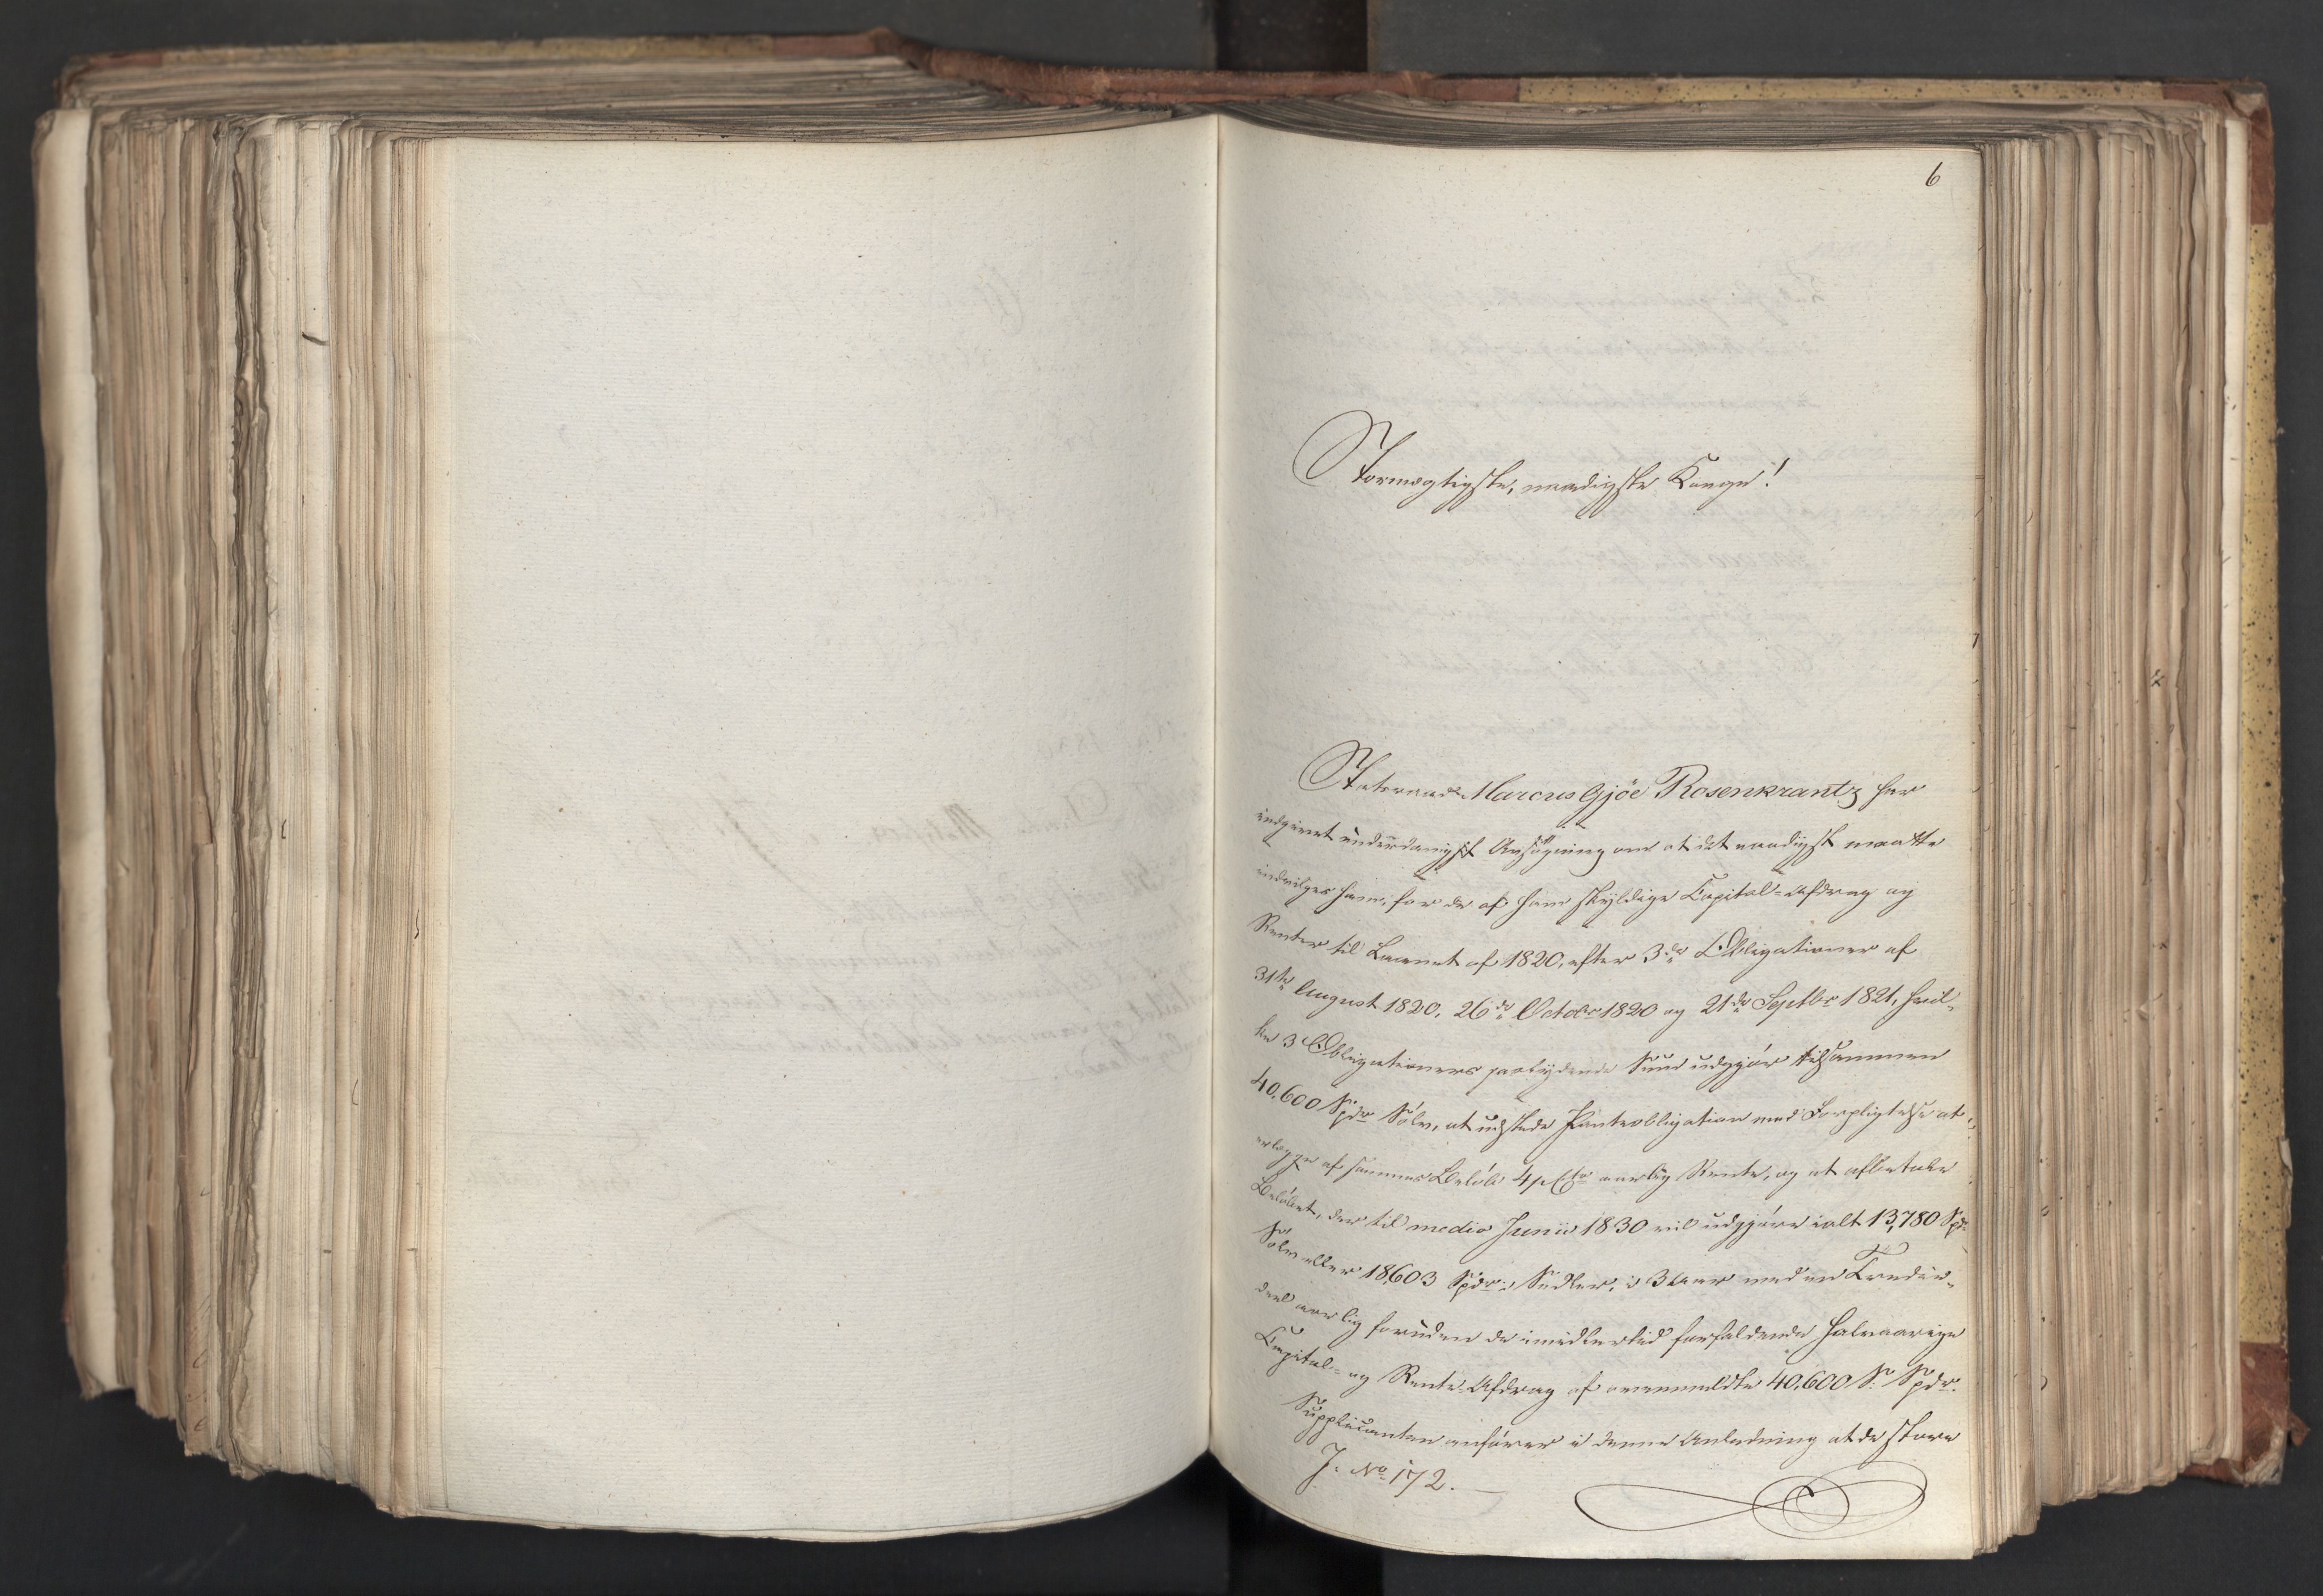 6
Stormægtigste, naadigste Konge!
Statsraad Marcus Gjöe Rosenkrantz har
indgivet underdanigst Ansögning om at det naadigst maatte
indvilges ham, for de af ham skyldige Capital-Afdrag og
Renter til Laanet af 1820, efter 3de Obligationer af
31te August 1820, 26de Octobr 1820 og 21de Septbr 1821, hvil-
ke 3 Obligationers paalydende Sum udgjör tilsammen
40,600 Spdr Sölv, at udstede Panteobligation med Forpligtelse at
erlægge af sammes Belöb 4 pCto aarlig Rente, og at afbetale
Belöbet, der til medio Junii 1830 vil udgjöre ialt 13,780 Spdr
Sölv eller 18,603 Spdr: Sedler, i 3 Aar med en Tredie-
deel aarlig foruden de imidlertid forfaldende halvaarige
Capital- og Rente-Afdrag af ovenmeldte 40,600 S. Spdr.
Supplicanten anförer i denne Anledning at de store
J. No 172.